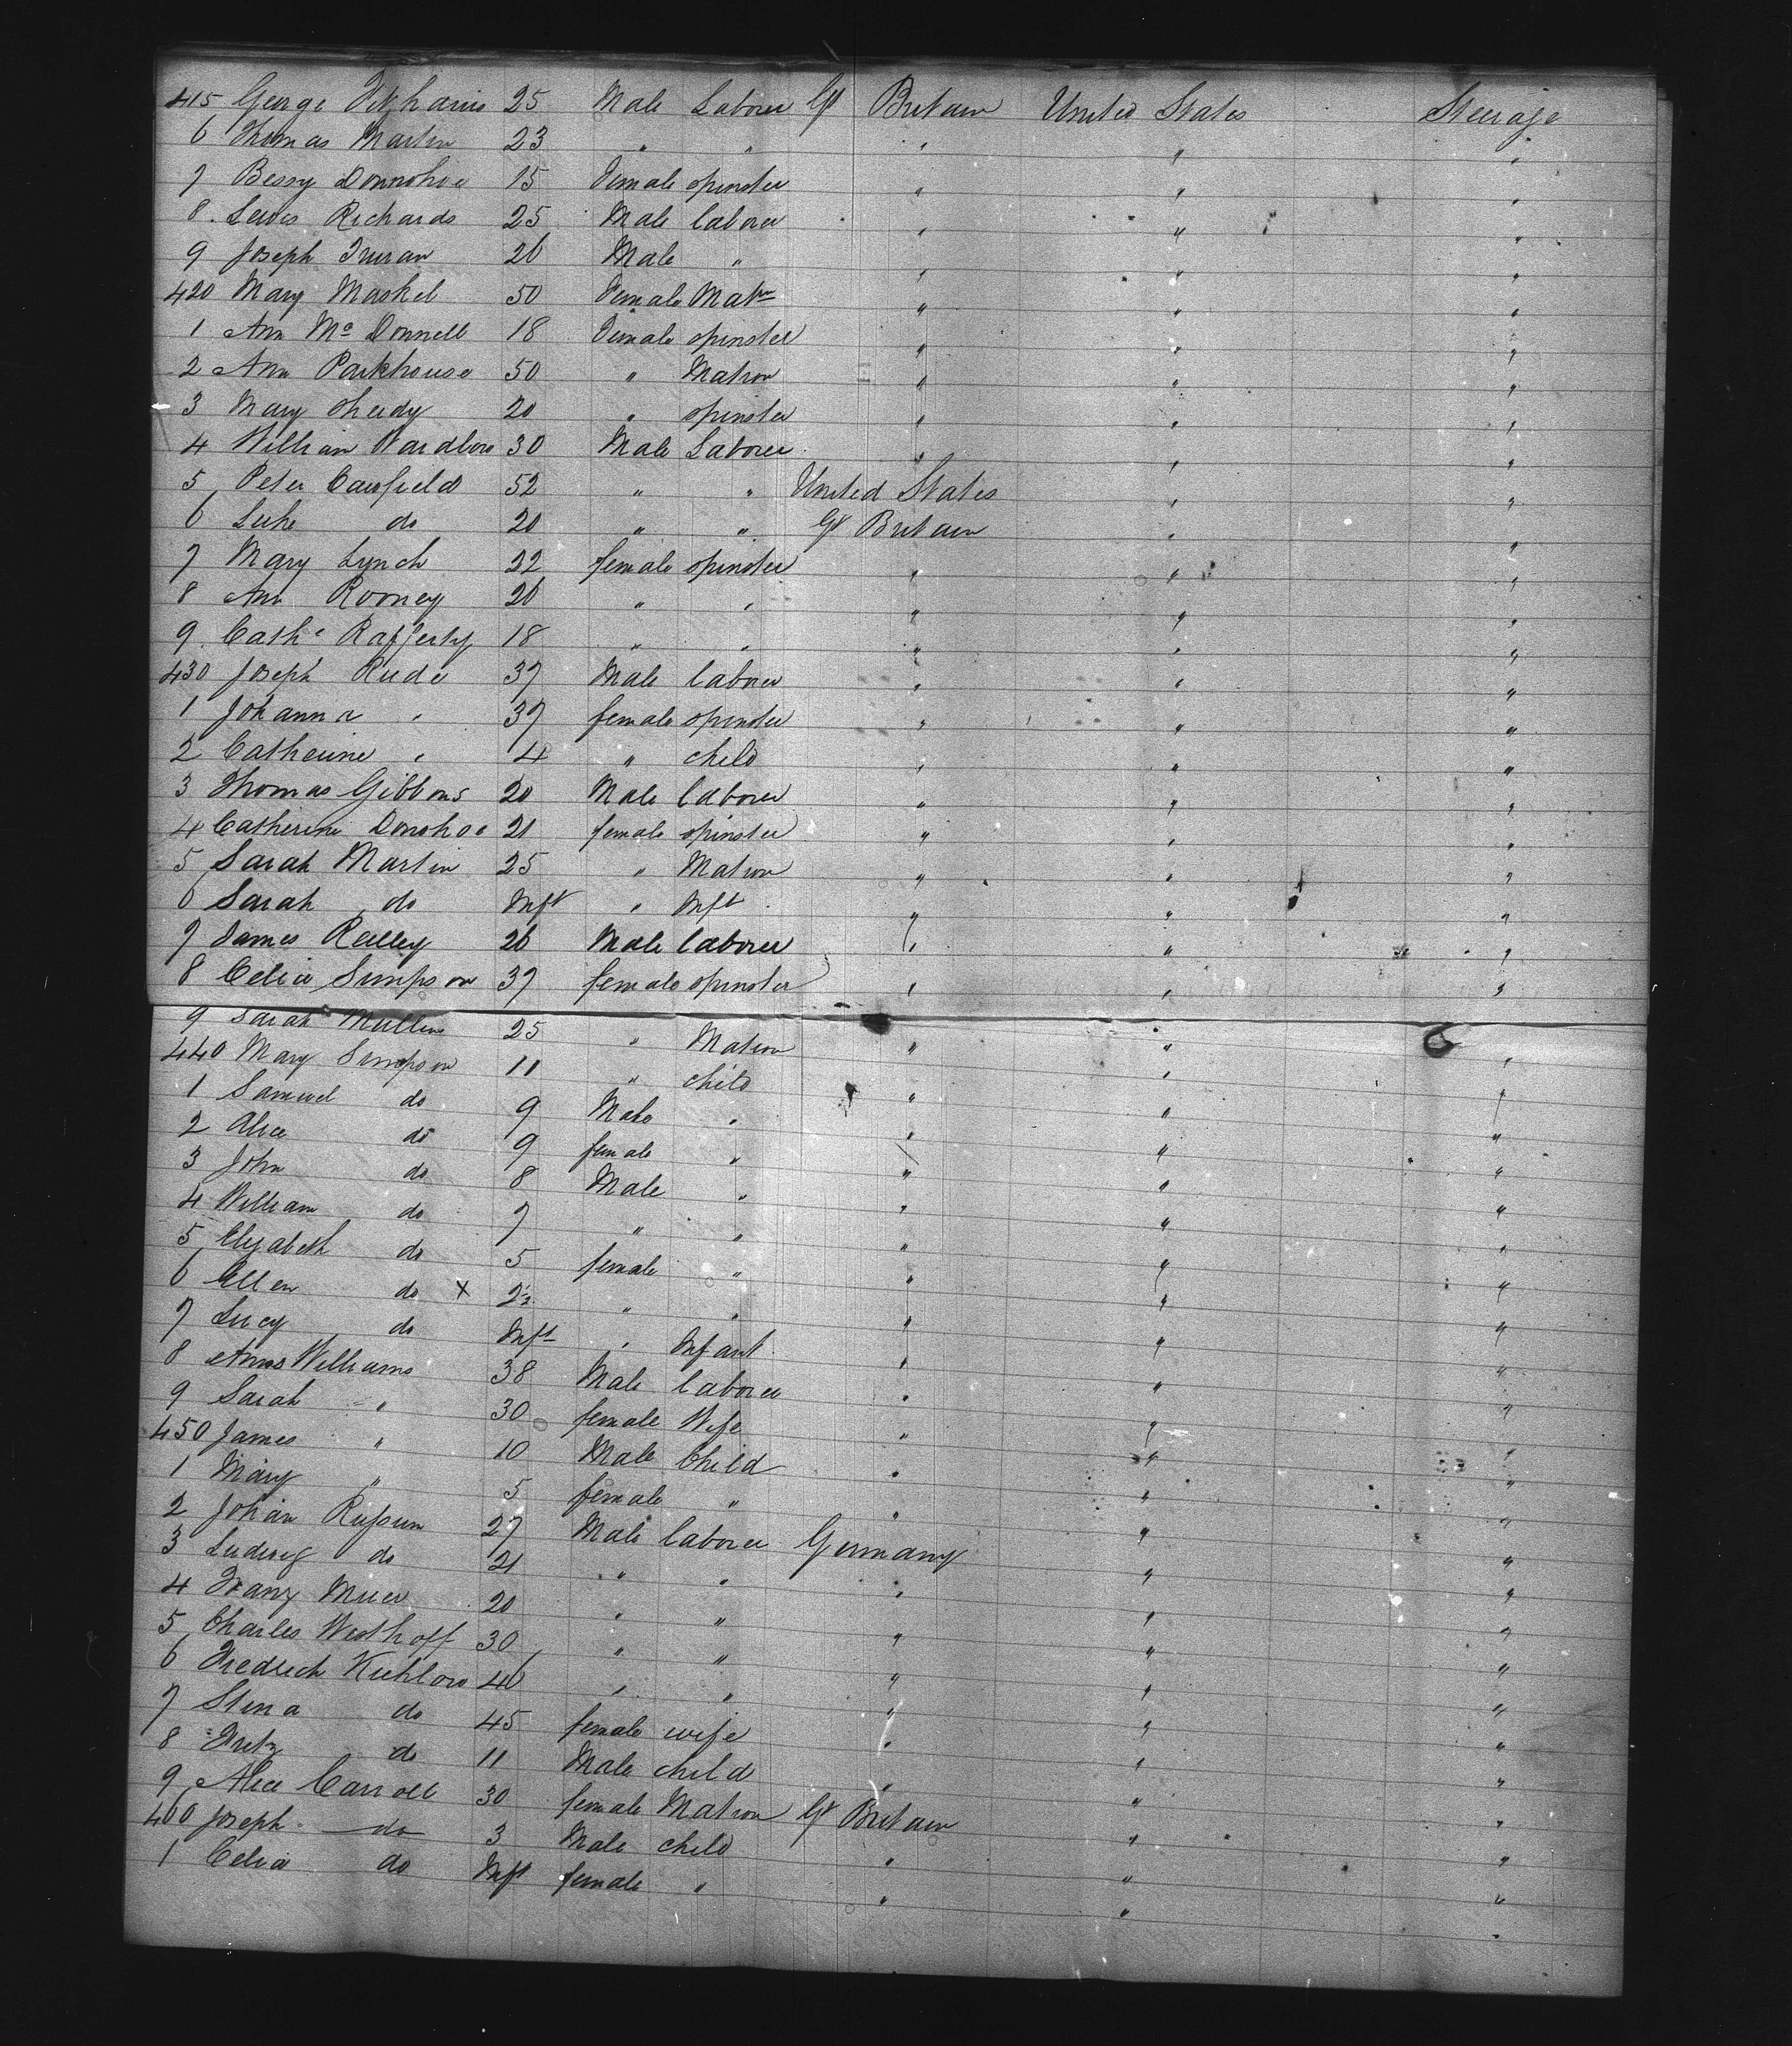 415 George 25 Male Laborer Gt Britain United States Steerage
6 Thomas Martin 23 " " " " "
7 Bessy Donnohoe 15 Female spinster " " "
8. Lewis Richards 25 Male laborer " " "
9 Joseph Truran 26 Male " " " "
420 Mary Maskel 50 Female Matn " " "
1 Ann Mc Donnell 18 Female spinster " " "
2 Ann Parkhouse 50 " Matron " " "
3 Mary Sheedy 20 " spinster " " "
4 William 30 Male Laborer " " "
5 Peter Caufield 52 " " United States " "
6 Luke do 20 " " Gt Britain " "
7 Mary Lynch 22 female spinster " " "
8 Ann Rooney 26 " " " " "
9. Cathe Rafferty 18 " " " " "
430 Joseph Rude 37 Male laborer " " "
1 Johanna " 37 female spinster " " "
2 Catherine " 4 " child " " "
3 Thomas Gibbons 20 Male laborer " " "
4 Catherine Donohoe 21 female spinster " " "
5 Sarah Martin 25 " Matron " " "
6 Sarah do Inft " Inft " " "
7 James Reilley 26 Male laborer " " "
8 Celia Simpson 37 female spinster " " "
9 Sarah Mullen 25 " Matron " " "
440 Mary Simpson 11 " child " " "
1 Samuel do 9 Male " " " "
2 Alice do 9 female " " " "
3 John do 8 Male " " " "
4 William do 7 " " " " "
5 Elizabeth do 5 female " " " "
6 Ellen do x 2½ " " " " "
7 Lucy do Inft " Infant " " "
8 Amos Williams 38 Male laborer " " "
9 Sarah " 30 female Wife " " "
450 James " 10 Male Child " " "
1 Mary " 5 female " " " "
2 Johan 27 Male laborer Germany " "
3 Ludwig do 21 " " " " "
4 Franz Meier 20 " " " " "
5 Charles Westhoff 30 " " " " "
6 Fredrich 46 " " " " "
7 Stena do 45 female wife " " "
8 Fritz do 11 Male child " " "
9 Alice Carroll 30 female Matron Gt Britain " "
460 Joseph do 3 Male child " " "
1 Celia do Inft female " " " "